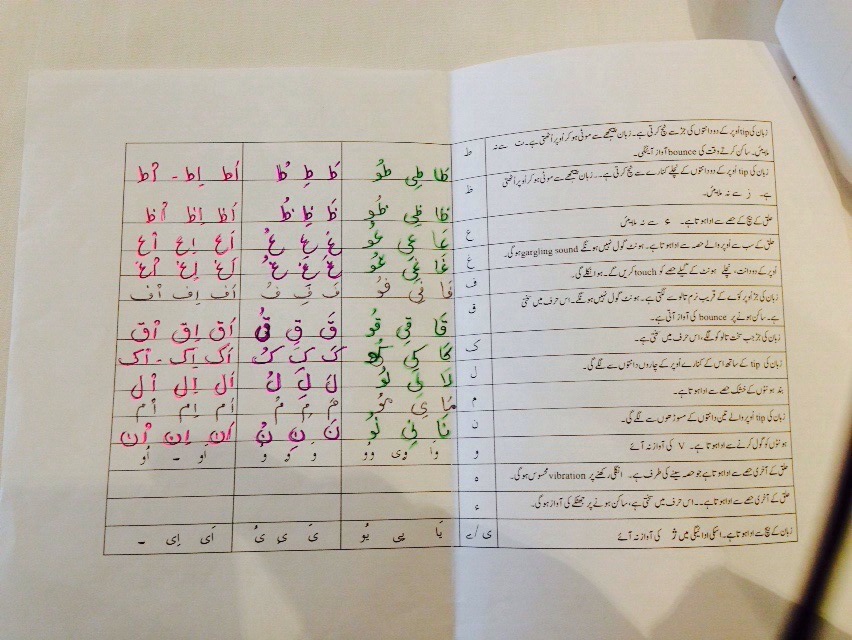 زبان کی tip اوپر کے دو دانتوں کی جڑ سے ٹچ کرتی ہے۔ زبان پیچھے سے موٹی ہو کر اوپر اٹھتی ہے۔ ت سے نہ ملایئں۔ ساکن کرتے وقت کی bounce آواز آیئگی۔ ط طَا طِی طُو طَ طِ طُ اَط اِط - اُط
زبان کی tip اوپر کے دو دانتوں کے نچلے کنارے سے ٹچ کرتی ہے۔۔ زبان پیچھے سے موٹی ہو کر اوپر اٹھتی ہے۔ ز سے نہ ملایئں۔ ظ ظَا ظِی ظُو ظَ ظِ ظُ اَظ اِظ اُظ
حلق کے بیچ کے حصے سے ادا ہوتا ہے۔ ء سے نہ ملایئں ع عَا عِی عُو عَ عِ عُ اَع اِع اُع
حلق کے سب سے اوپر والے حصہ سے ادا ہوتا ہے۔ ہونٹ گول نہیں ہونگے gargling sound ہوگی۔ غ غَا غِی غُو غَ غِ غُ اَغ اِغ اُغ
اوپر کے دو دانت، نچلے ہونٹ کے گیلے حصے کو touch کریں گے۔ ہوا نکلے گی۔ ف فَا فِی فُو فَ فِ فُ اَف اِف اُف
زبان کی جڑ اوپر کوّے کے قریب نرم تالو سے لگتی ہے۔ ہونٹ گول نہیں ہونگے۔ اس حرف میں سختی ہے۔ ساکن ہونے پر bounce کی آواز آتی ہے۔ ق قَا قِی قُو قَ قِ قُ اَق اِق اُق
زبان کی جڑ جب سخت تالو کو لگے، اس حرف میں سختی ہے۔ ک کَا کِی کُو کَ کِ کُ اَک اِک - اُک
زبان کی tip کے ساتھ اس کے کنارے اوپر کے چاروں دانتوں سے لگے گی۔ ل لَا لِی لُو لَ لِ لُ اَل اِل اُل
بند ہونٹوں کے خشک حصے سے ادا ہوتا ہے۔ م مَا مِی مُو مَ مِ مُ اَم اِم اُم
زبان کی tip اوپر والے تین دانتوں کے مسوڑھوں سے لگے گی۔ ن نَا نِی نُو نَ نِ نُ اَن اِن اُن
ہونٹوں کو گول کرنے سے ادا ہوتا ہے۔ V کی آواز نہ آئے و وَا وِی وُو وَ وِ وُ اَو - اُو
حلق کے آخری حصے سے ادا ہوتا ہے جو حصہ سینے کی طرف ہے۔ انگلی رکھنے پر vibration محسوس ہوگی۔ ہ
حلق کے آخری حصے سے ادا ہوتا ہے۔۔ اس حرف میں سختی ہے، ساکن ہونے پر جھٹکے کی آواز ہوگی۔ ء
زبان کے بیچ سے ادا ہوتا ہے۔ اسکی ادائیگی میں ژ کی آواز نہ آئے ی/ے یَا یِی یُو یَ یِ یُ اَی اِی -